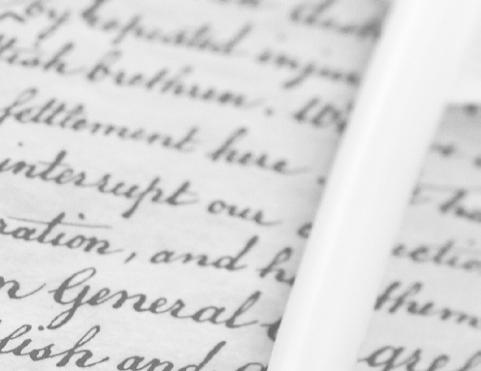 by repeated injur
tish brethren. We
settlement here.
interrupt our c ection
ration, and h them
n General
lish and